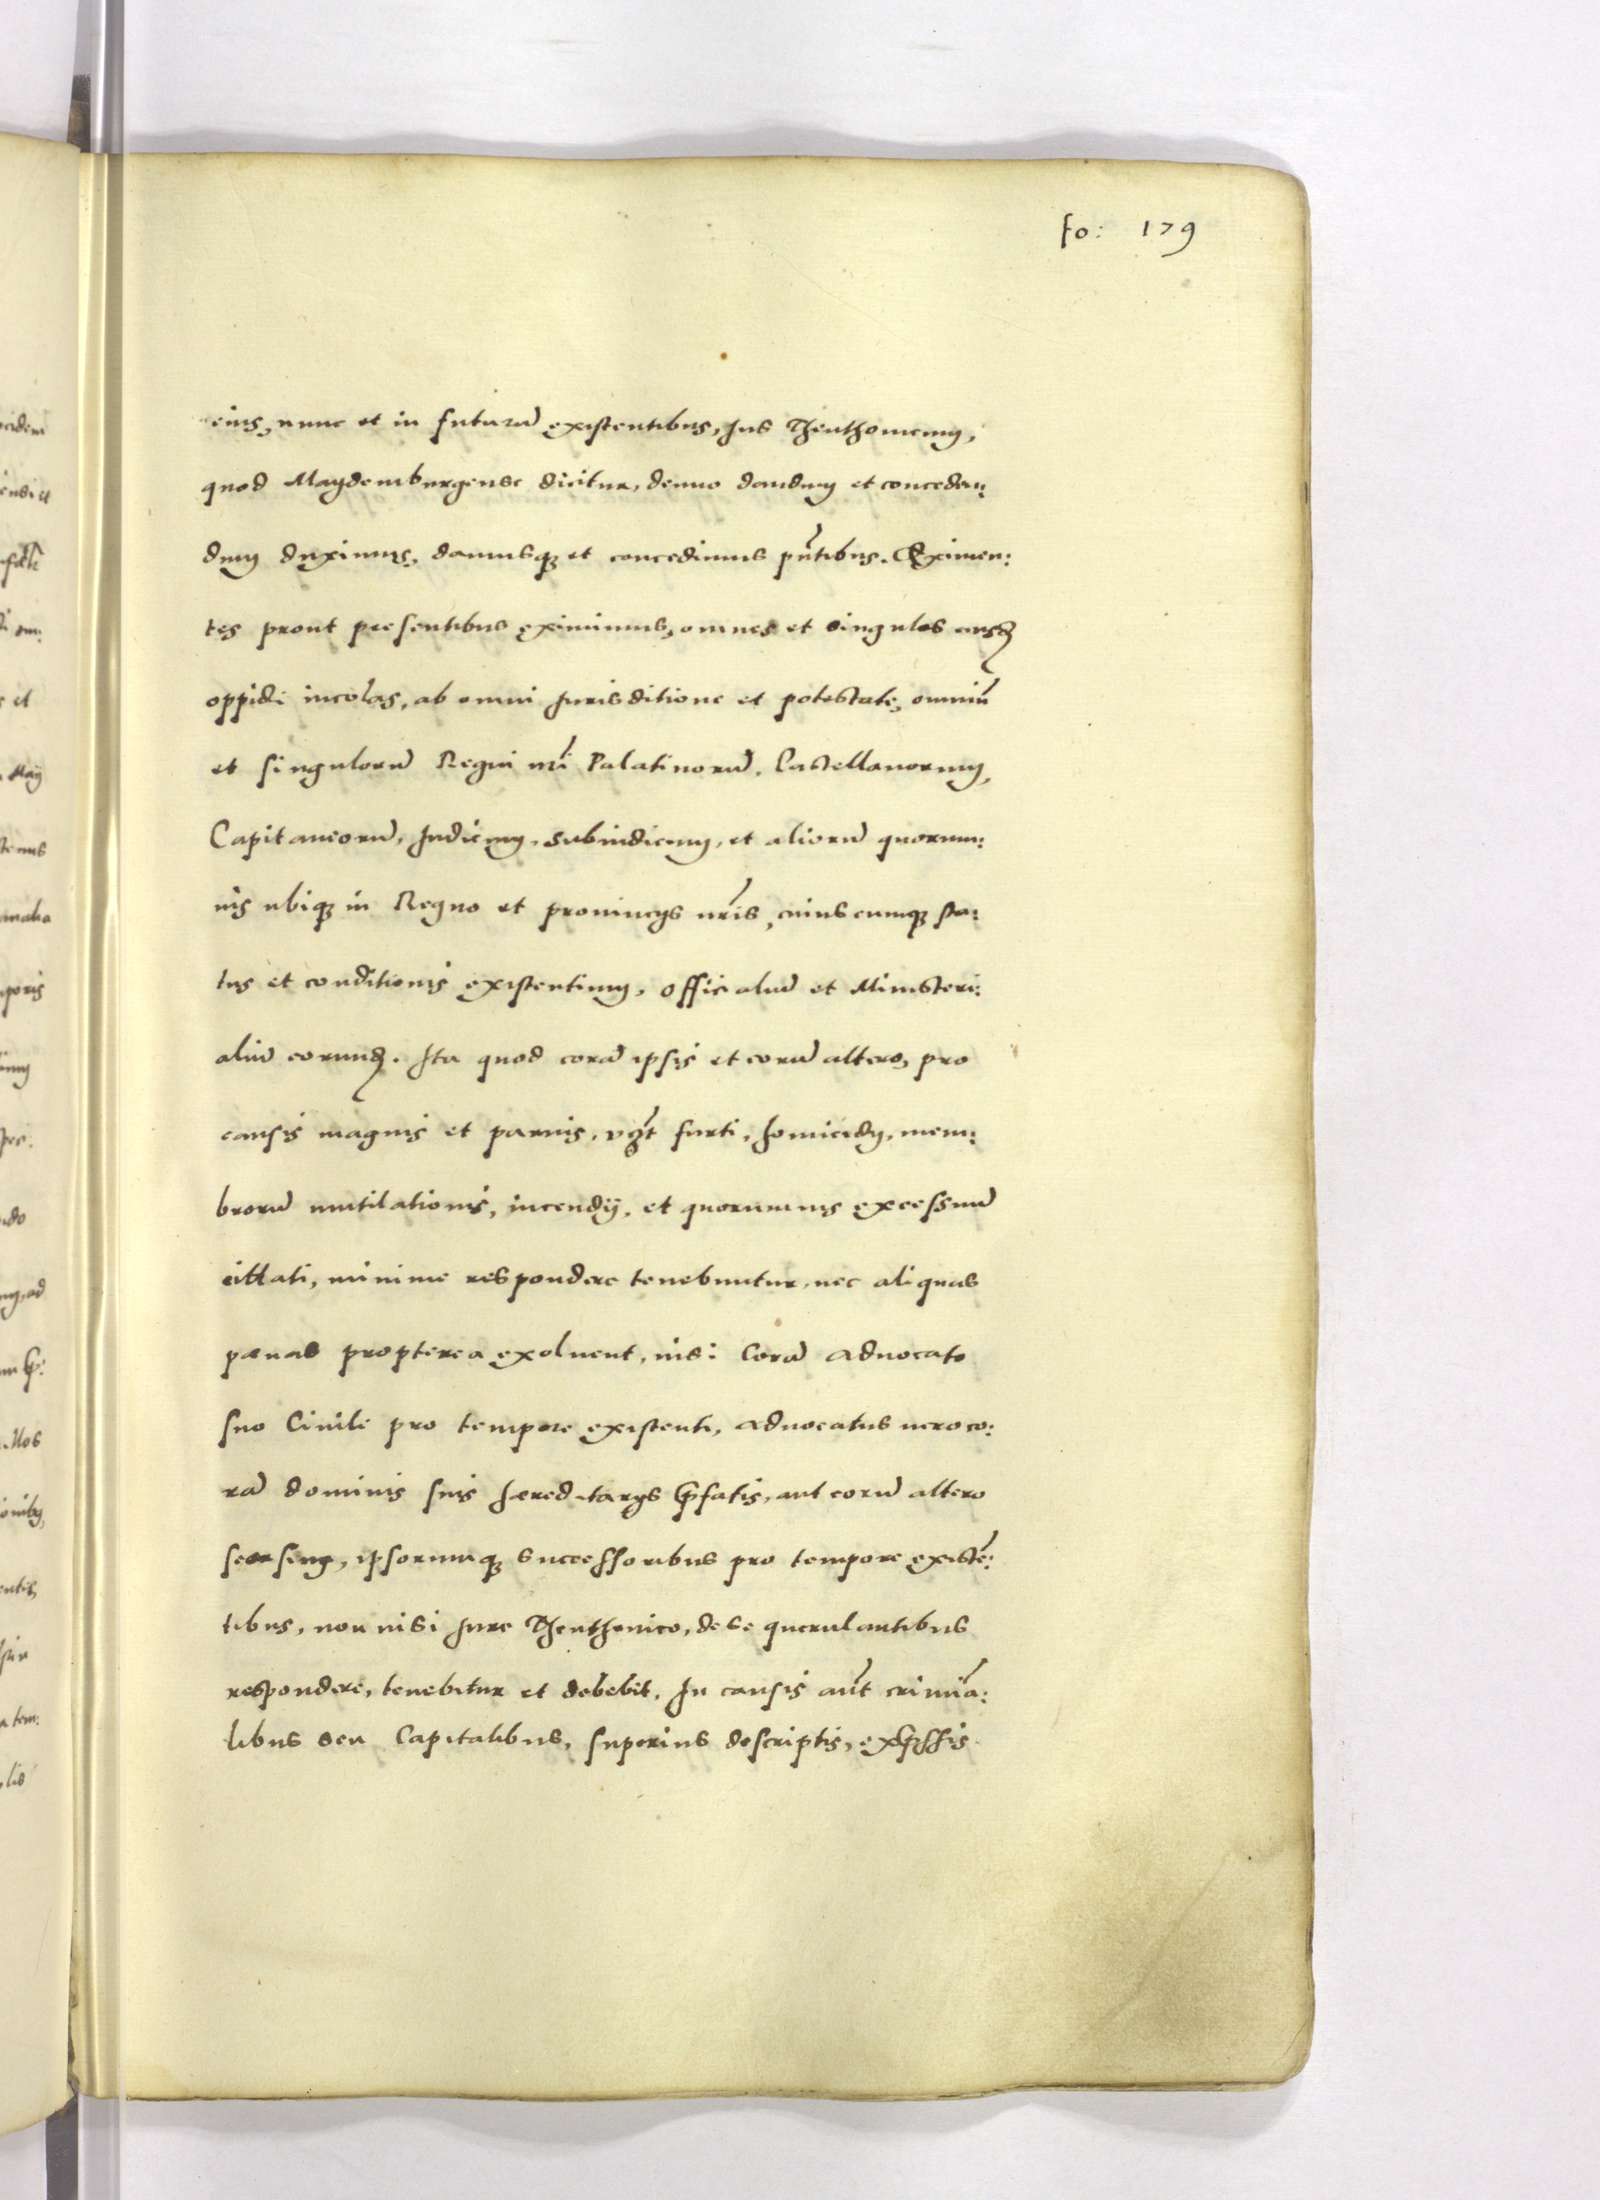 fo: 179
eius, nunc et in futurũ existentibus, Jus Theuthonicum,
quod Maydemburgense dicitur, denuo dandum et conceden:
dum duximus, damusq3 et concedimus pñtibus. Eximen:
tes prout presentibus eximimus, omnes et singulos eiusd
oppidi incolas, ab omni Jurisditione et potestate, omniũ
et singulorũ Regni nrĩ Palatinorũ, Castellanorum,
Capitaneorũ, Judicum, Subiudicum, et aliorũ quorum:
uis ubiq3 in Regno et prouincys nrĩs, cuiuscumq3 sta:
tus et conditionis existentium, officialiũ et Ministeri:
aliũ eorund. Ita quod corã ipsis et eorũ altero, pro
causis magnis et paruis, vgt furti, homicidy, mem:
brorũ mutilationis, incendÿ, et quorumuis excessuũ
cittati, minime respondere tenebuntur, nec aliquas
pænas propterea exoluent, nisi Corã aduocato
suo Ciuile pro tempore existenti, aduocatus uero co:
rã dominis suis hæreditarys p̃fatis, aut eorũ altero
seorsing, ipsorumq3 successoribus pro tempore existẽ:
tibus, non nisi Jure Theuthonico, de se querulantibus
respondere, tenebitur et debebit. In causis aũt crimĩa:
libus seu Capitalibus, superius descriptis, exp̃ssis